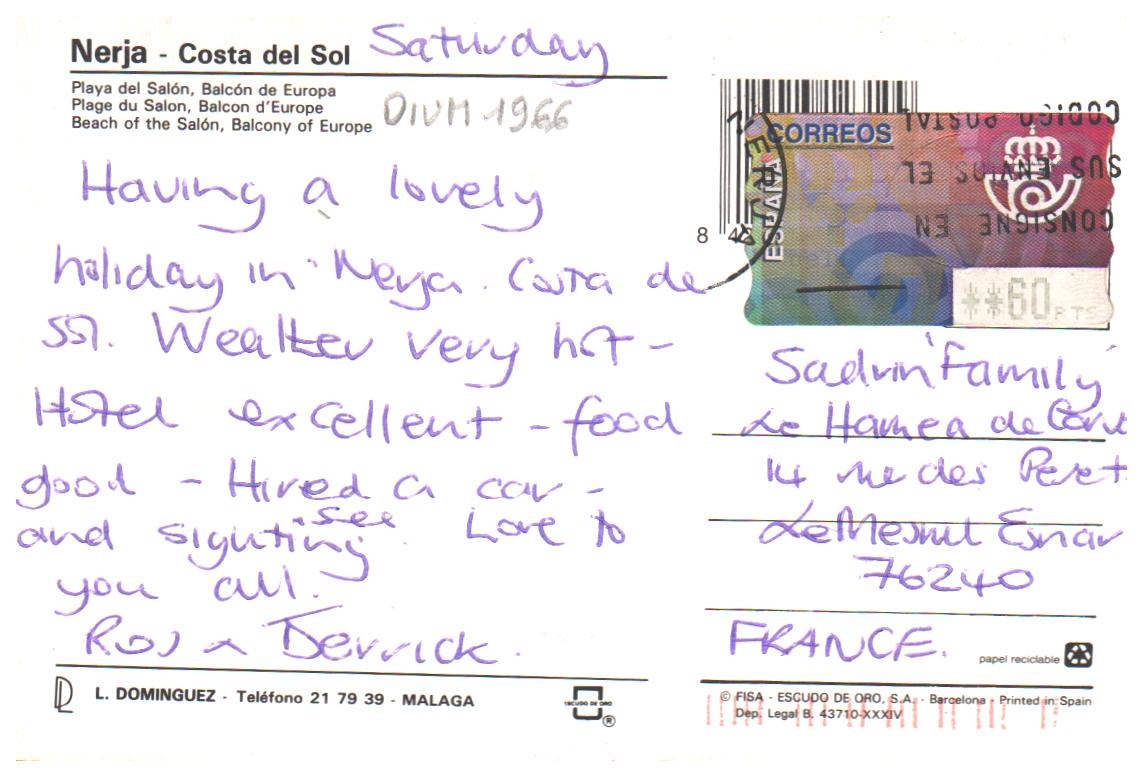 Nerja - Costa del Sol Saturday
Playa del Salón, Balcón de Europa
Plage du Salon, Balcon d'Europe
Beach of the Salón, Balcony of Europe
1966
Having a lovely
holiday in Nerja. Costa de
Sol. Weather very hot -
Hotel excellent - food
good - Hired a car -
and sighting see. Love to
you all.
Ros x Derrick.
L. DOMINGUEZ - Teléfono 21 79 39 - MALAGA
ESCUDO DE ORO
®
8 4
NERJA
CORREOS
ESPAÑA
CONSIGNE EN
SUS ENVIOS EL
CODIGO POSTAL
**60 PTS
Sadrin Family
Le Hamea de
14 rue des
Le Mesnil Esnar
76240
FRANCE.
papel reciclable
© FISA - ESCUDO DE ORO, S.A. - Barcelona - Printed in Spain
Dep. Legal B. 43710-XXXIV